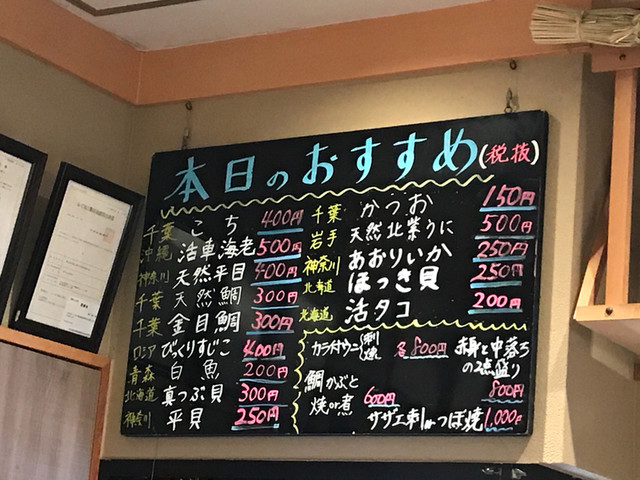 本日のおすすめ(税抜)
千葉 こち 400円
沖縄 活車海老 500円
神奈川 天然平目 400円
千葉 天然鯛 300円
千葉 金目鯛 300円
ロシア びっくりすじこ 400円
青森 白魚 200円
北海道 真つぶ貝 300円
神奈川 平貝 250円
千葉 かつお 150円
岩手 天然北紫うに 500円
神奈川 あおりいか 250円
北海道 ほっき貝 250円
北海道 活タコ 200円
カラ付ウニ 刺 焼 各800円
鯛かぶと
焼or煮 600円
赤身と中落ち
の2点盛り
800円
サザエ刺orつぼ焼 1,000円